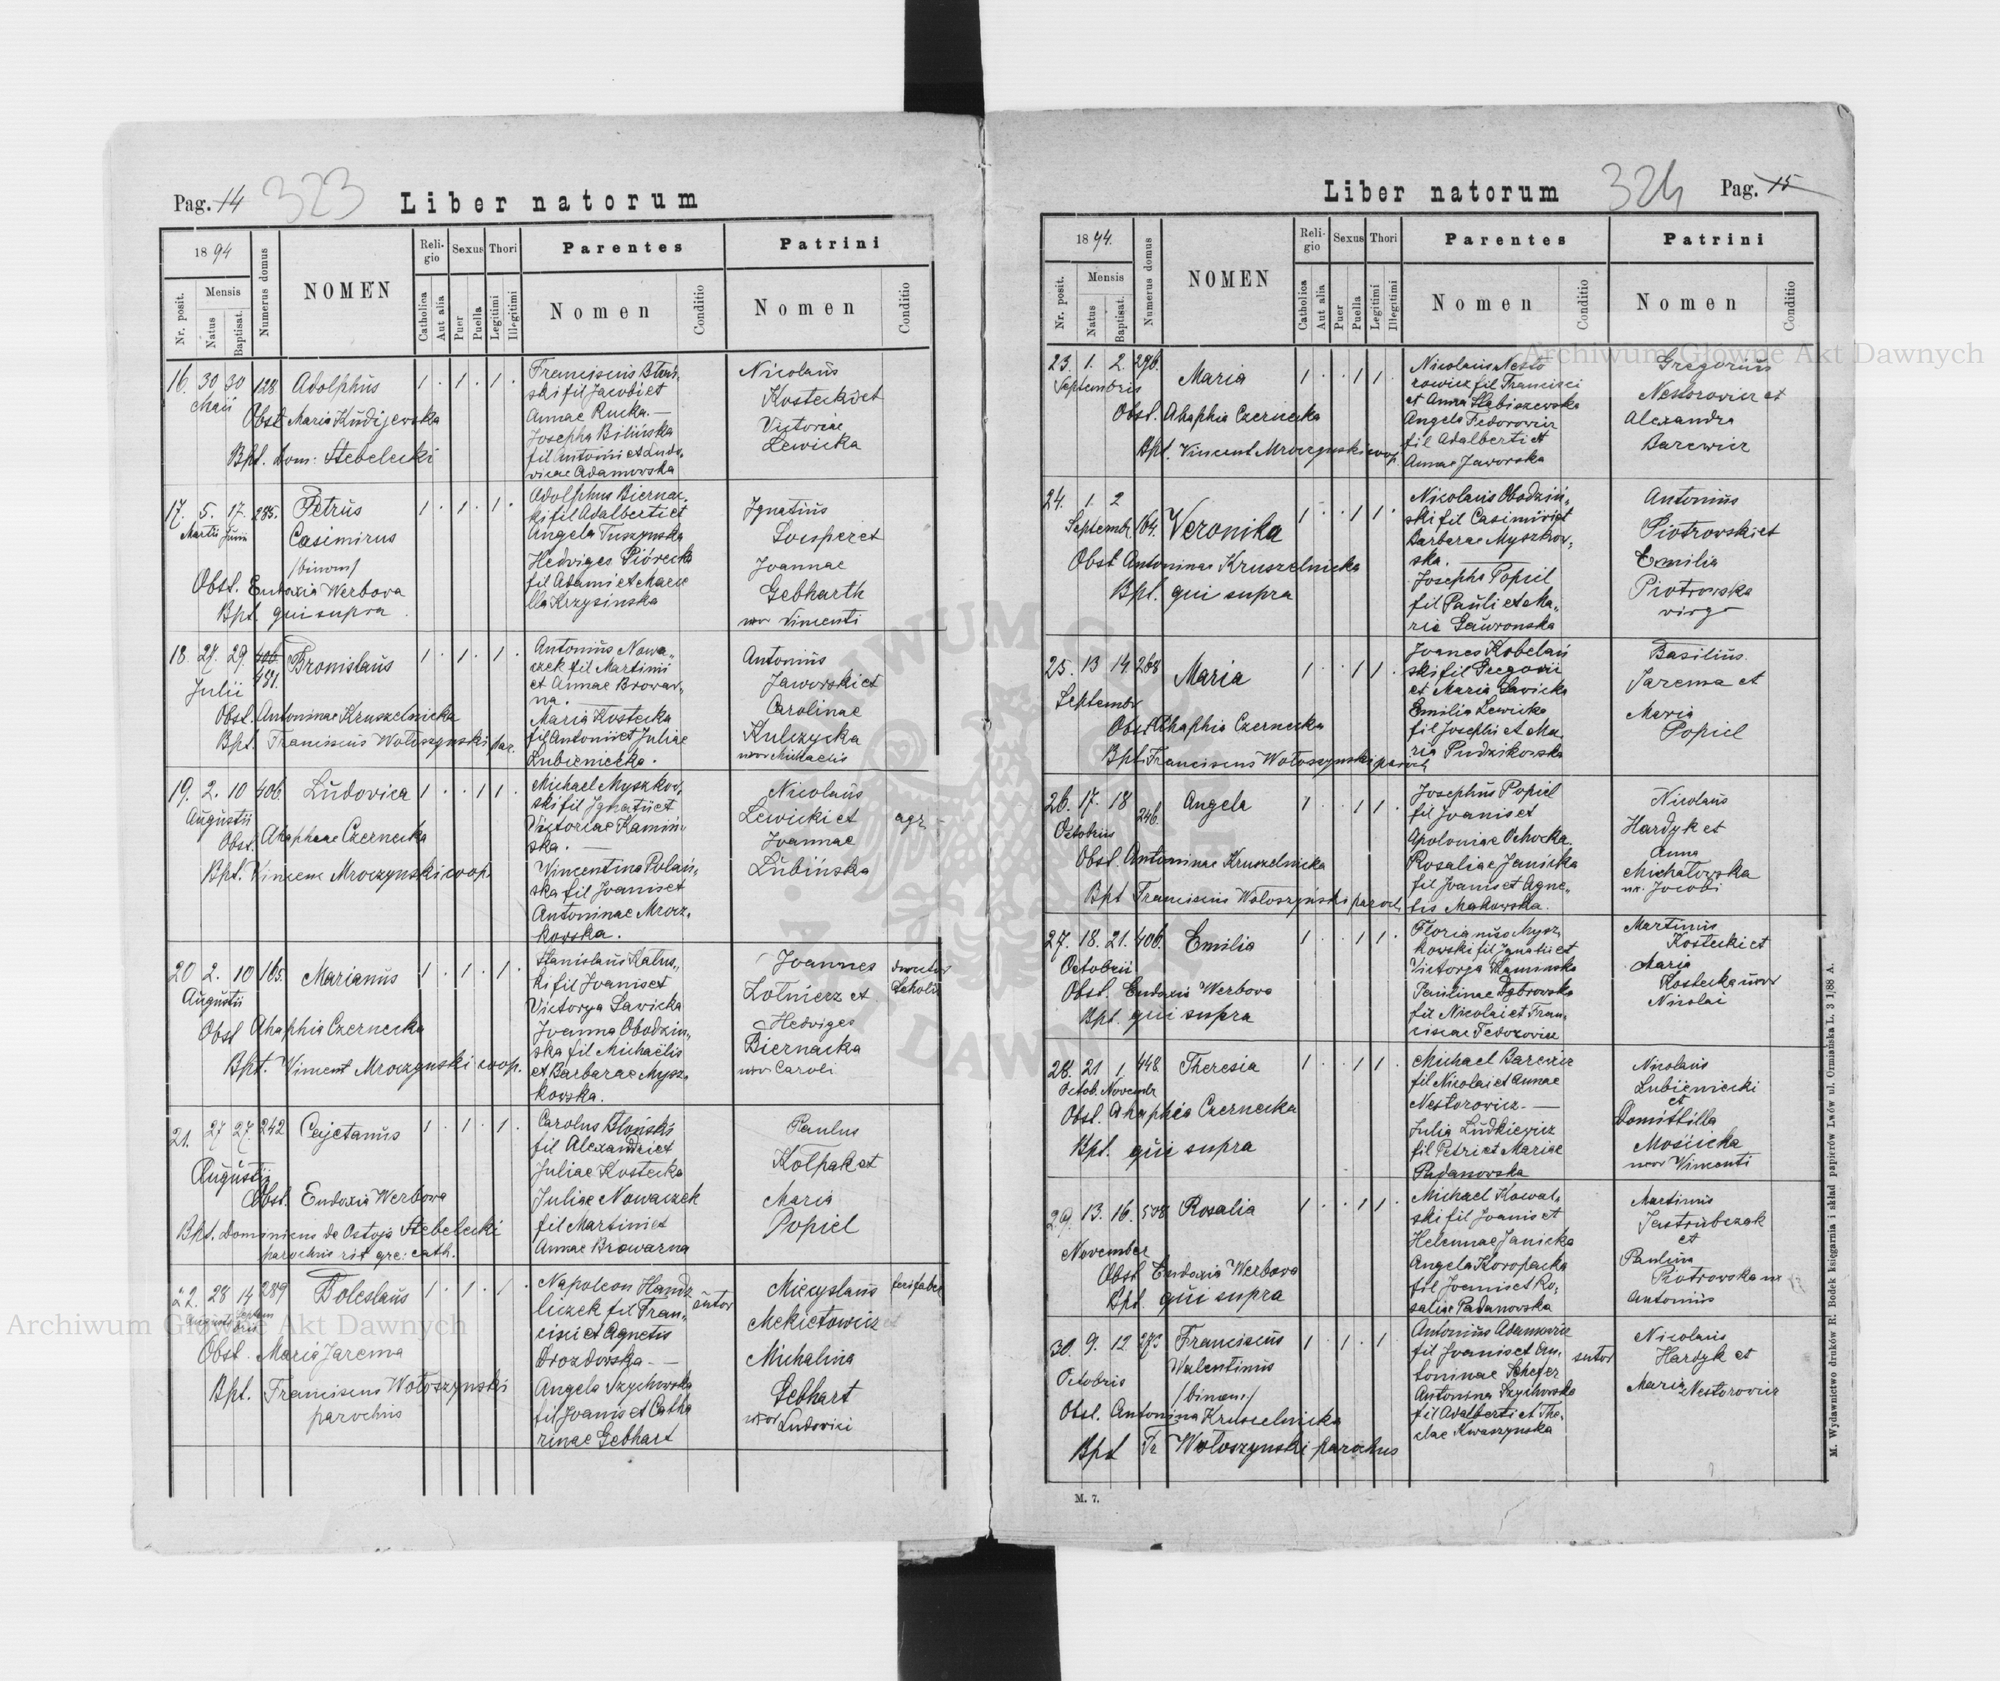 Pag. 14 323 Liber natorum
1894
Numerus domus
NOMEN
Religio
Sexus
Thori
Parentes
Patrini
Nr. posit.
Mensis
Natus
Baptisat.
Catholica
Aut alia
Puer
Puella
Legitimi
Illegitimi
Nomen
Conditio
Nomen
Conditio
16. 30 30 128 Adolphus 1 . 1 . 1 .
Maii
Obst. Maria Kudijewska
Bpt. Dom: Stebelecki
Franciscus Błoń-
ski fil Jacobi et
Annae Rucka. —
Josepha Bilińska
fil Antonii et Ludo-
vicae Adamowska
Nicolaus
Kostecki et
Victoriae
Lewicka
17. 5. 17. 285. Petrus 1 . 1 . 1 .
Martii Junii Casimirus
/binom/
Obst. Eudoxia Werbova
Bpt. qui supra
Adolphus Biernac-
ki fil Adalberti et
Angela Tuszynska
Hedviges Piórecka
fil Adami et
Krzysinska
Ignatius
et
Joannae
Gebharth
uxor Vincenti
18. 27. 29. 406 Bronislaus 1 . 1 . 1 .
Julii 431.
Obst. Antoninae Kruszelnicka
Bpt. Franciscus Wołoszynski par.
Antonius Nowa-
czek fil Martini
et Annae Browar-
na.
Maria Kostecka
fil Antonii et Juliae
Lubieniecka.
Antonius
Jaworski et
Carolinae
Kulczycka
uxor Michaelis
19. 2. 10 406. Ludovica 1 . . 1 1 .
Augustii
Obst. Ahaphiae Czernecka
Bpt. Vincenc Mroczynski coop.
Michael Myszkow-
ski fil Ignatii et
Victoriae Kamiń-
ska. —
Vincentina Polań-
ska fil Joanis et
Antoninae Mrocz-
kowska.
Nicolaus
Lewicki et
Joannae
Lubińska
agr.
20 2. 10 165. Marianus 1 . 1 . 1 .
Augustii
Obst Ahaphia Czernecka
Bpt. Vincent Mroczynski coop.
Stanislaus Kalus-
ki fil Joanis et
Victorya Sawicka
Joanna Obodzin-
ska fil Michaëlis
et Barbarae Mysz-
kowska.
Joannes
Zołnierz et
Hedviges
Biernacka
uxor Caroli
director
scholae
21. 27 27. 242 Cajetanus 1 . 1 . 1 .
Augustii
Obst. Eudoxia Werbowa
Bpt. Dominicus de Ostoja Stebelecki
parochus rit. gre: cath.
Carolus Błoński
fil Alexandri et
Juliae Kostecka
Juliae Nowaczek
fil Martini et
Annae Browarna
Paulus
Kołpak et
Maria
Popiel
22. 28 14 289 Boleslaus 1 . 1 . 1 .
Augusti Septembris
Obst. Maria Jarema
Bpt. Franciscus Wołoszynski
parochus
Napoleon Handz
liczek fil Fran-
cisci et Agnetis
Drozdowska —
Angela Szychowska
fil Joanis et Catha
rinae Gebhart
sutor
Miecyslaus
Mekietowicz et
Michalina
Gebhart
uxor Ludovici
feri faber
Liber natorum 324 Pag. 15
1894.
Numerus domus
NOMEN
Religio
Sexus
Thori
Parentes
Patrini
Nr. posit.
Mensis
Natus
Baptisat.
Catholica
Aut alia
Puer
Puella
Legitimi
Illegitimi
Nomen
Conditio
Nomen
Conditio
23. 1. 2. 296. Maria 1 . . 1 1 .
Septembris
Obst. Ahaphia Czernecka
Bpt. Vincent Mroczynski coop.
Nicolaus Nesto
rowicz fil Francisci
et Anna Słabiszewska
Angela Fedorowicz
fil Adalberti et
Annae Jaworska
Gregorius
Nestorowicz et
Alexandra
Barewicz
24. 1. 2 164. Veronika 1 . . 1 1 .
Septembr.
Obst Antoninae Kruszelnicka
Bpt. qui supra
Nicolaus Obodziń-
ski fil Casimiri et
Barbarae Myszkow-
ska.
Josepha Popiel
fil Pauli et Ma-
ria Gawronska
Antonius
Piotrowski et
Emilia
Piotrowska
virgo
25. 13 14. 268 Maria 1 . . 1 1 .
Septembr
Obst Ahaphia Czernecka
Bpt. Franciscus Wołoszynski paroch
Joanes Kobelań
ski fil Gregorii
et Maria Sawicka
Emilia Lewicka
fil Josephi et Ma-
ria Pudzikowska
Basilius
Jarema et
Maria
Popiel
26. 17. 18 246. Angela 1 . . 1 1 .
Octobris
Obst. Antoninae Kruszelnicka
Bpt Franciscus Wołoszyński paroch
Josephus Popiel
fil Joanis et
Apoloniae Ochocka.
Rosaliae Janicka
fil Joanis et Agne-
tis Makowska.
Nicolaus
Hardyk et
Anna
Michałowska
ux. Jacobi
27. 18. 21. 406. Emilia 1 . . 1 1 .
Octobrii
Obst. Eudoxia Werbova
Bpt. qui supra
Florianus Mysz-
kowski fil Ignatii et
Victorya Kaminska
Paulinae Dąbrowska
fil Nicolai et Fran-
ciscae Fedorowicz
Martinus
Kostecki et
Maria
Kostecka uxor
Nicolai
28. 21 1 448 Theresia 1 . . 1 1 .
Octob. Novembr
Obst. Ahaphia Czernecka
Bpt. qui supra
Michael Barewicz
fil Nicolai et Annae
Nestorowicz. —
Julia Ludkiewicz
fil Petri et Mariae
Padanowska
Nicolaus
Lubieniecki
et
Domitilla
Mościcka
uxor Vincenti
29. 13. 16. 508 Rosalia 1 . . 1 1 .
November
Obst. Eudoxia Werbowa
Bpt. qui supra
Michael Kowal-
ski fil Joanis et
Helennae Janicka
Angela Koropacka
fil Joanis et Ro-
saliae Padanowska
Martinus
Jastrubczak
et
Paulina
Piotrowska ux
Antonius
30. 9. 12 Franciscus 1 . 1 . 1 .
Octobris Walentinus
/binom:/
Obst. Antonina Kruszelnicka
Bpt Fr Wołoszynski parochus
Antonius Adamowicz
fil Joanis et An-
toninae Schefer
Antonina Szychowska
fil Adalberti et The-
clae Kwaszynska
sutor
Nicolaus
Hardyk et
Maria Nestorowicz
M. 7.
M. Wydawnictwo druków R. Bodek księgarnia i skład papierów Lwów ul. Ormiańska L. 3 1/88 A.
Archiwum Główne Akt Dawnych
Archiwum Główne Akt Dawnych